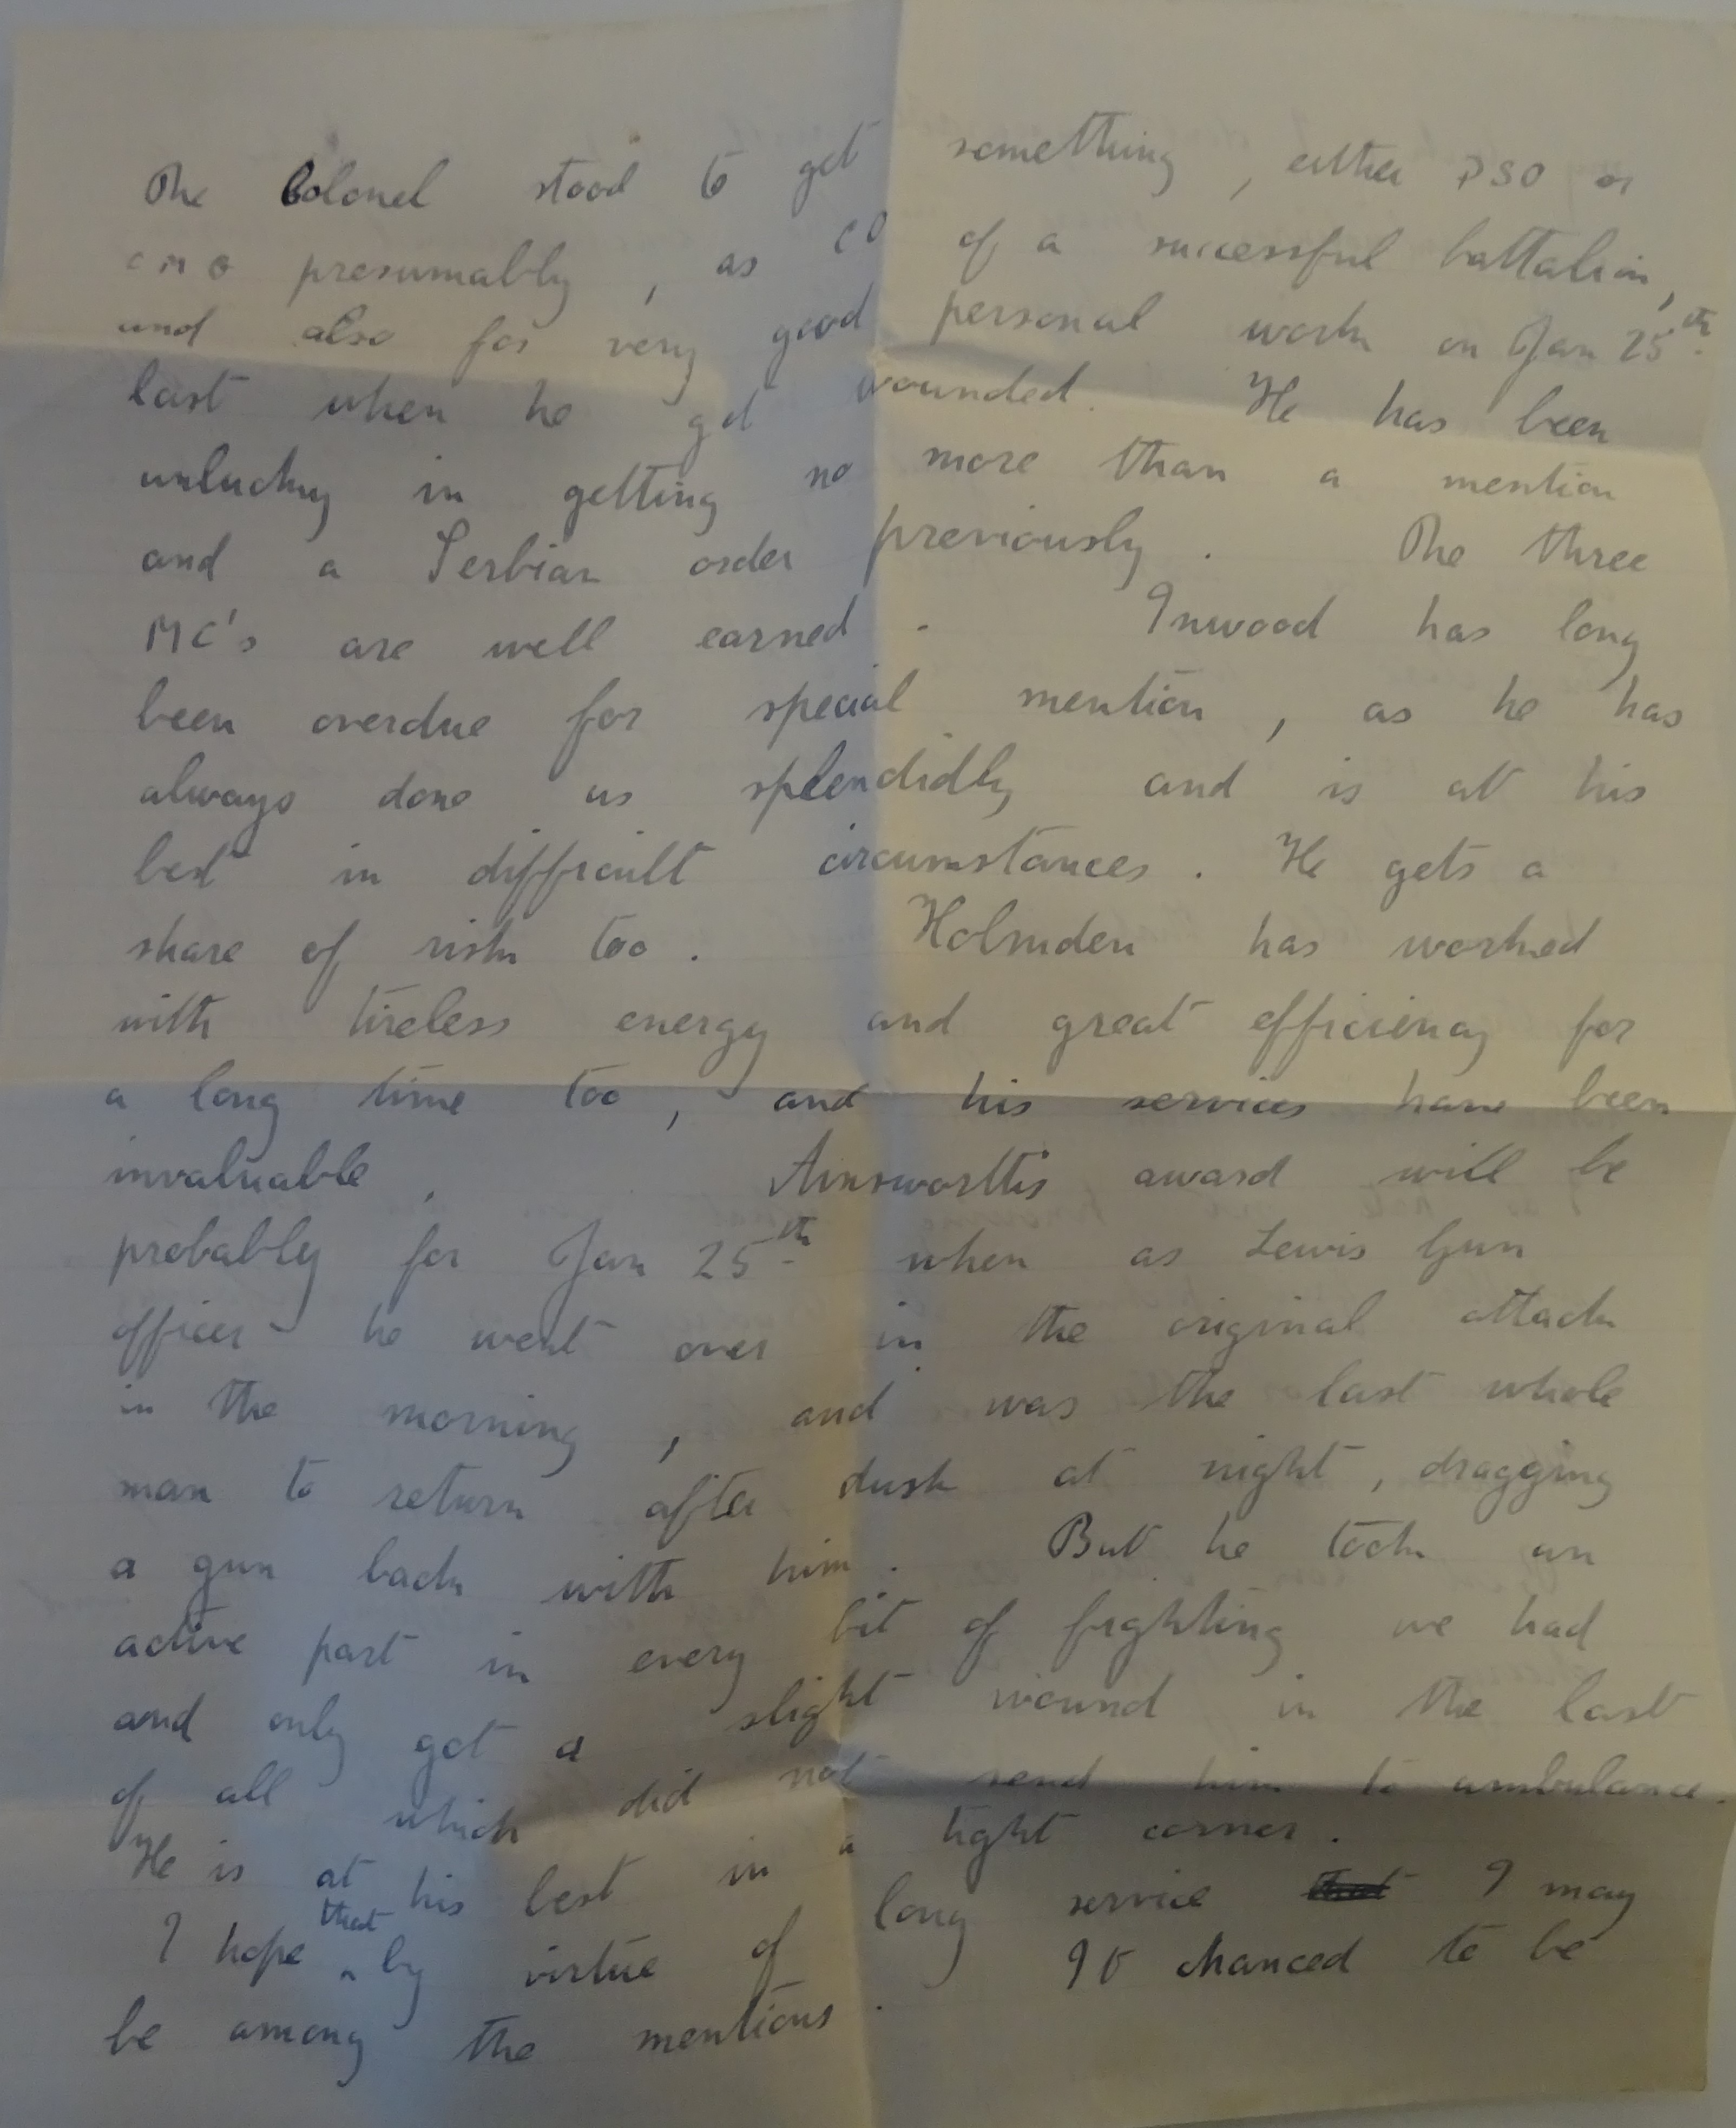 The Colonel stood to get something, either DSO or
CMG presumably, as CO of a successful battalion,
and also for very good personal work on Jan 25th
last when he got wounded. He has been
unlucky in getting no more than a mention
and a Serbian order previously. The three
MC's are well earned. Inwood has long
been overdue for special mention, as he has
always done us splendidly and is at his
best in difficult circumstances. He gets a
share of risk too. Holmden has worked
with tireless energy and great efficiency for
a long time too, and his services have been
invaluable. Ainsworth's award will be
probably for Jan 25th when as Lewis Gun
officer he went over in the original attack
in the morning, and was the last whole
man to return after dusk at night, dragging
a gun back with him. But he took an
active part in every bit of fighting we had
and only got a slight wound in the last
of all which did not send him to ambulance.
He is at his best in a tight corner.
I hope that by virtue of long service that I may
be among the mentions. It chanced to be